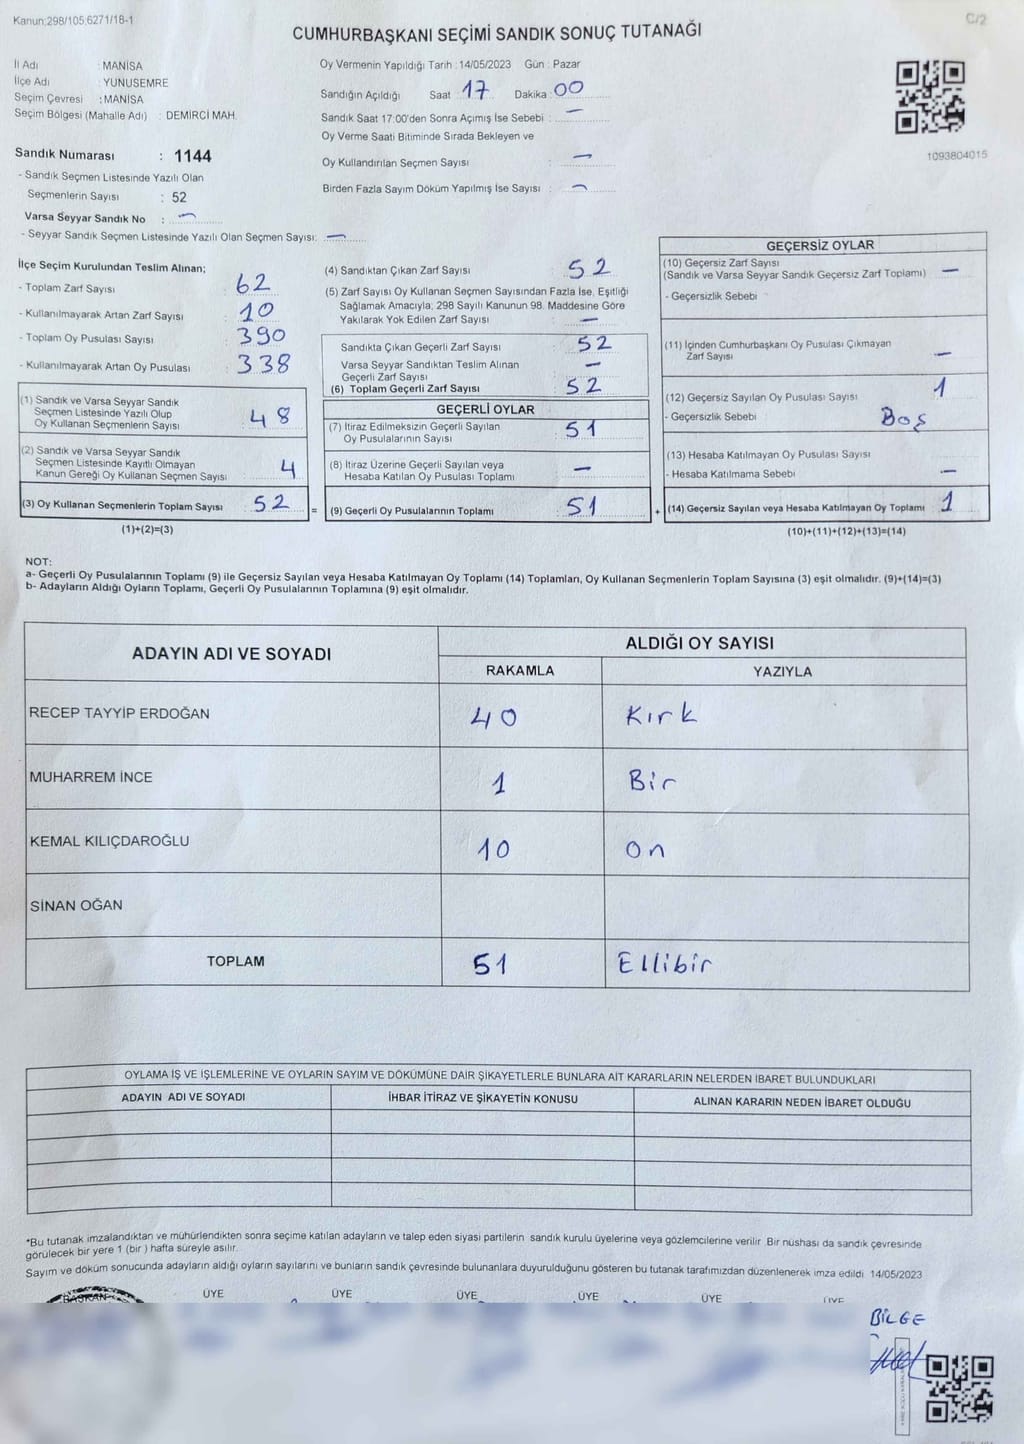 Kanun;298/105;6271/18-1
C/2
CUMHURBAŞKANI SEÇİMİ SANDIK SONUÇ TUTANAĞI
İl Adı : MANİSA
İlçe Adı : YUNUSEMRE
Seçim Çevresi : MANİSA
Seçim Bölgesi (Mahalle Adı) : DEMIRCİ MAH.
Sandık Numarası : 1144
- Sandık Seçmen Listesinde Yazılı Olan
Seçmenlerin Sayısı : 52
Varsa Seyyar Sandık No : —
- Seyyar Sandık Seçmen Listesinde Yazılı Olan Seçmen Sayısı: —
Oy Vermenin Yapıldığı Tarih : 14/05/2023 Gün : Pazar
Sandığın Açıldığı Saat : 17 Dakika : 00
Sandık Saat 17:00'den Sonra Açımış İse Sebebi : —
Oy Verme Saati Bitiminde Sırada Bekleyen ve
Oy Kullandırılan Seçmen Sayısı : —
Birden Fazla Sayım Döküm Yapılmış İse Sayısı : —
1093804015
İlçe Seçim Kurulundan Teslim Alınan;
- Toplam Zarf Sayısı : 62
- Kullanılmayarak Artan Zarf Sayısı : 10
- Toplam Oy Pusulası Sayısı : 390
- Kullanılmayarak Artan Oy Pusulası : 338
(1) Sandık ve Varsa Seyyar Sandık
Seçmen Listesinde Yazılı Olup
Oy Kullanan Seçmenlerin Sayısı : 48
(2) Sandık ve Varsa Seyyar Sandık
Seçmen Listesinde Kayıtlı Olmayan
Kanun Gereği Oy Kullanan Seçmen Sayısı : 4
(3) Oy Kullanan Seçmenlerin Toplam Sayısı : 52
(1)+(2)=(3)
(4) Sandıktan Çıkan Zarf Sayısı : 52
(5) Zarf Sayısı Oy Kullanan Seçmen Sayısından Fazla İse, Eşitliği
Sağlamak Amacıyla; 298 Sayılı Kanunun 98. Maddesine Göre
Yakılarak Yok Edilen Zarf Sayısı : —
Sandıkta Çıkan Geçerli Zarf Sayısı : 52
Varsa Seyyar Sandıktan Teslim Alınan
Geçerli Zarf Sayısı : —
(6) Toplam Geçerli Zarf Sayısı : 52
GEÇERLİ OYLAR
(7) İtiraz Edilmeksizin Geçerli Sayılan
Oy Pusulalarının Sayısı : 51
(8) İtiraz Üzerine Geçerli Sayılan veya
Hesaba Katılan Oy Pusulası Toplamı : —
= (9) Geçerli Oy Pusulalarının Toplamı : 51
GEÇERSİZ OYLAR
(10) Geçersiz Zarf Sayısı
(Sandık ve Varsa Seyyar Sandık Geçersiz Zarf Toplamı) : —
- Geçersizlik Sebebi :
(11) İçinden Cumhurbaşkanı Oy Pusulası Çıkmayan
Zarf Sayısı : —
(12) Geçersiz Sayılan Oy Pusulası Sayısı : 1
- Geçersizlik Sebebi : Boş
(13) Hesaba Katılmayan Oy Pusulası Sayısı :
- Hesaba Katılmama Sebebi : —
+ (14) Geçersiz Sayılan veya Hesaba Katılmayan Oy Toplamı : 1
(10)+(11)+(12)+(13)=(14)
NOT:
a- Geçerli Oy Pusulalarının Toplamı (9) ile Geçersiz Sayılan veya Hesaba Katılmayan Oy Toplamı (14) Toplamları, Oy Kullanan Seçmenlerin Toplam Sayısına (3) eşit olmalıdır. (9)+(14)=(3)
b- Adayların Aldığı Oyların Toplamı, Geçerli Oy Pusulalarının Toplamına (9) eşit olmalıdır.
ADAYIN ADI VE SOYADI
ALDIĞI OY SAYISI
RAKAMLA YAZIYLA
RECEP TAYYİP ERDOĞAN 40 Kırk
MUHARREM İNCE 1 Bir
KEMAL KILIÇDAROĞLU 10 On
SİNAN OĞAN
TOPLAM 51 Ellibir
OYLAMA İŞ VE İŞLEMLERİNE VE OYLARIN SAYIM VE DÖKÜMÜNE DAİR ŞİKAYETLERLE BUNLARA AİT KARARLARIN NELERDEN İBARET BULUNDUKLARI
ADAYIN ADI VE SOYADI İHBAR İTİRAZ VE ŞİKAYETİN KONUSU ALINAN KARARIN NEDEN İBARET OLDUĞU
*Bu tutanak imzalandıktan ve mühürlendikten sonra seçime katılan adayların ve talep eden siyasi partilerin sandık kurulu üyelerine veya gözlemcilerine verilir. Bir nüshası da sandık çevresinde
görülecek bir yere 1 (bir ) hafta süreyle asılır.
Sayım ve döküm sonucunda adayların aldığı oyların sayılarını ve bunların sandık çevresinde bulunanlara duyurulduğunu gösteren bu tutanak tarafımızdan düzenlenerek imza edildi. 14/05/2023
BAŞKAN ÜYE ÜYE ÜYE ÜYE ÜYE ÜYE
BİLGE